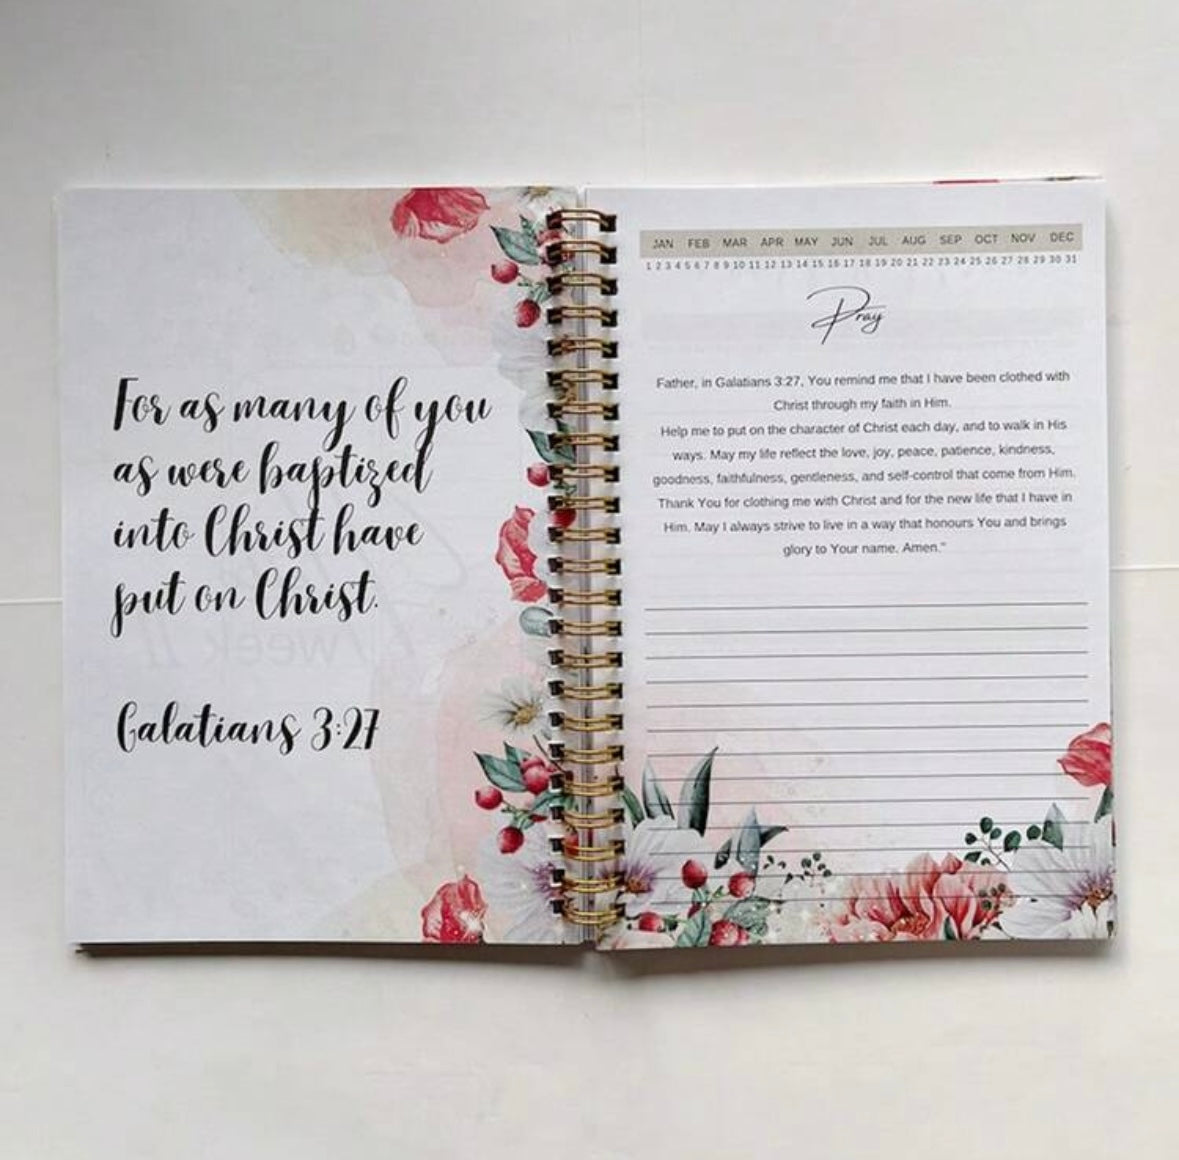 For as many of you
as were baptized
into Christ have
put on Christ.
Galatians 3:27
JAN FEB MAR APR MAY JUN JUL AUG SEP OCT NOV DEC
1 2 3 4 5 6 7 8 9 10 11 12 13 14 15 16 17 18 19 20 21 22 23 24 25 26 27 28 29 30 31
Pray
Father, in Galatians 3:27, You remind me that I have been clothed with
Christ through my faith in Him.
Help me to put on the character of Christ each day, and to walk in His
ways. May my life reflect the love, joy, peace, patience, kindness,
goodness, faithfulness, gentleness, and self-control that come from Him.
Thank You for clothing me with Christ and for the new life that I have in
Him. May I always strive to live in a way that honours You and brings
glory to Your name. Amen."